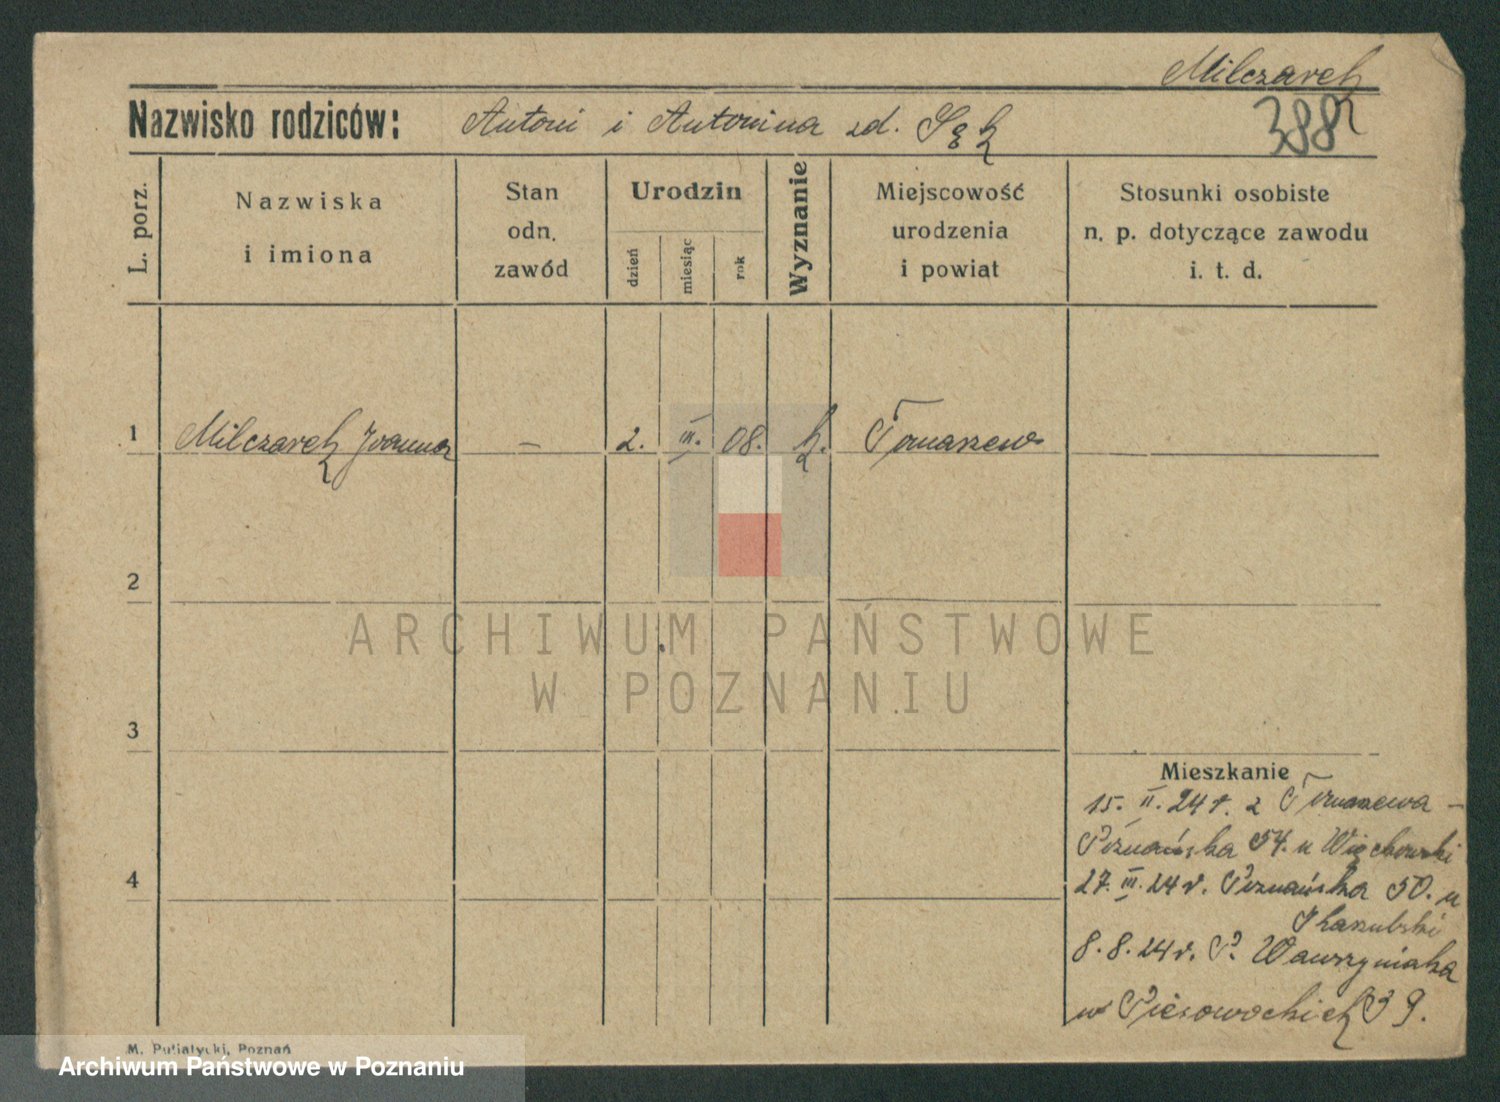 Milczarek
Nazwisko rodziców: Antoni i Antonina zd. Sęk
388
L. porz.
Nazwiska
i imiona
Stan
odn.
zawód
Urodzin
dzień
miesiąc
rok
Wyznanie
Miejscowość
urodzenia
i powiat
Stosunki osobiste
n. p. dotyczące zawodu
i. t. d.
1 Milczarek Joanna — 2. III. 08. k. Tomaszew
2
3
4
Mieszkanie
15. II. 24 r. z Tomaszewa –
Poznańska 54. u Więckowski
27. III. 24 r. Poznańska 50. u
8. 8. 24 r. P. Wawrzyniaka
w 39.
M. Putiatycki, Poznań
ARCHIWUM PAŃSTWOWE
W POZNANIU
Archiwum Państwowe w Poznaniu